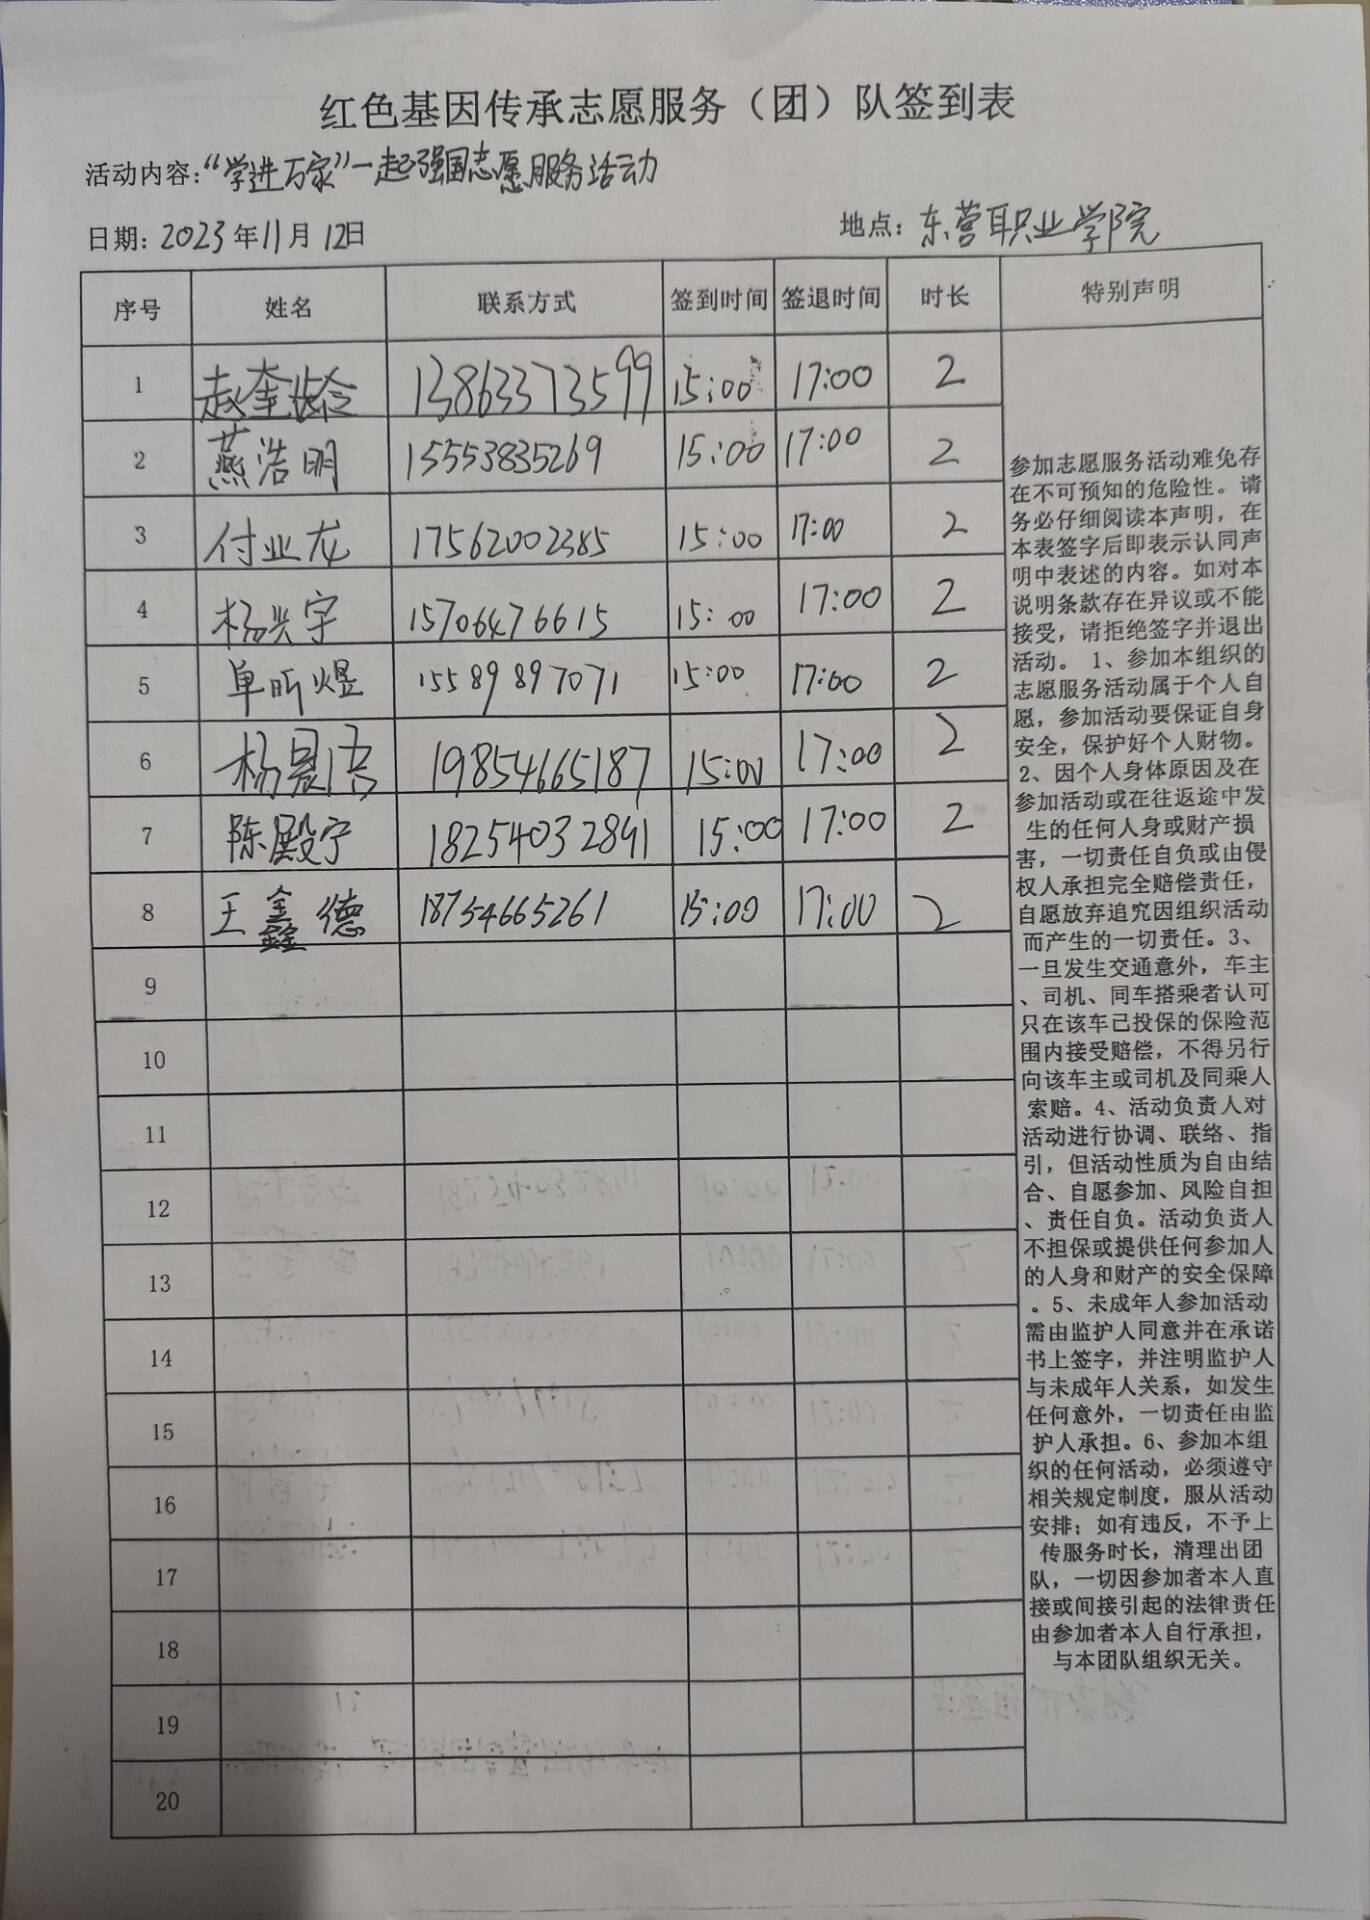 红色基因传承志愿服务（团）队签到表
活动内容：“学进万家”一起强国志愿服务活动
日期：2023年11月12日 地点：东营职业学院
序号 姓名 联系方式 签到时间 签退时间 时长 特别声明
1 赵奎龄 13863373599 15:00 17:00 2
2 燕浩明 15553835269 15:00 17:00 2
3 付业龙 17562002385 15:00 17:00 2
4 杨兴宇 15706476615 15:00 17:00 2
5 单昕煜 15589897071 15:00 17:00 2
6 杨 19854665187 15:00 17:00 2
7 陈殿宁 18254032891 15:00 17:00 2
8 王鑫德 18754665261 15:00 17:00 2
9
10
11
12
13
14
15
16
17
18
19
20
参加志愿服务活动难免存
在不可预知的危险性。请
务必仔细阅读本声明，在
本表签字后即表示认同声
明中表述的内容。如对本
说明条款存在异议或不能
接受，请拒绝签字并退出
活动。1、参加本组织的
志愿服务活动属于个人自
愿，参加活动要保证自身
安全，保护好个人财物。
2、因个人身体原因及在
参加活动或在往返途中发
生的任何人身或财产损
害，一切责任自负或由侵
权人承担完全赔偿责任，
自愿放弃追究因组织活动
而产生的一切责任。3、
一旦发生交通意外，车主
、司机、同车搭乘者认可
只在该车已投保的保险范
围内接受赔偿，不得另行
向该车主或司机及同乘人
索赔。4、活动负责人对
活动进行协调、联络、指
引，但活动性质为自由结
合、自愿参加、风险自担
、责任自负。活动负责人
不担保或提供任何参加人
的人身和财产的安全保障
。5、未成年人参加活动
需由监护人同意并在承诺
书上签字，并注明监护人
与未成年人关系，如发生
任何意外，一切责任由监
护人承担。6、参加本组
织的任何活动，必须遵守
相关规定制度，服从活动
安排；如有违反，不予上
传服务时长，清理出团
队，一切因参加者本人直
接或间接引起的法律责任
由参加者本人自行承担，
与本团队组织无关。